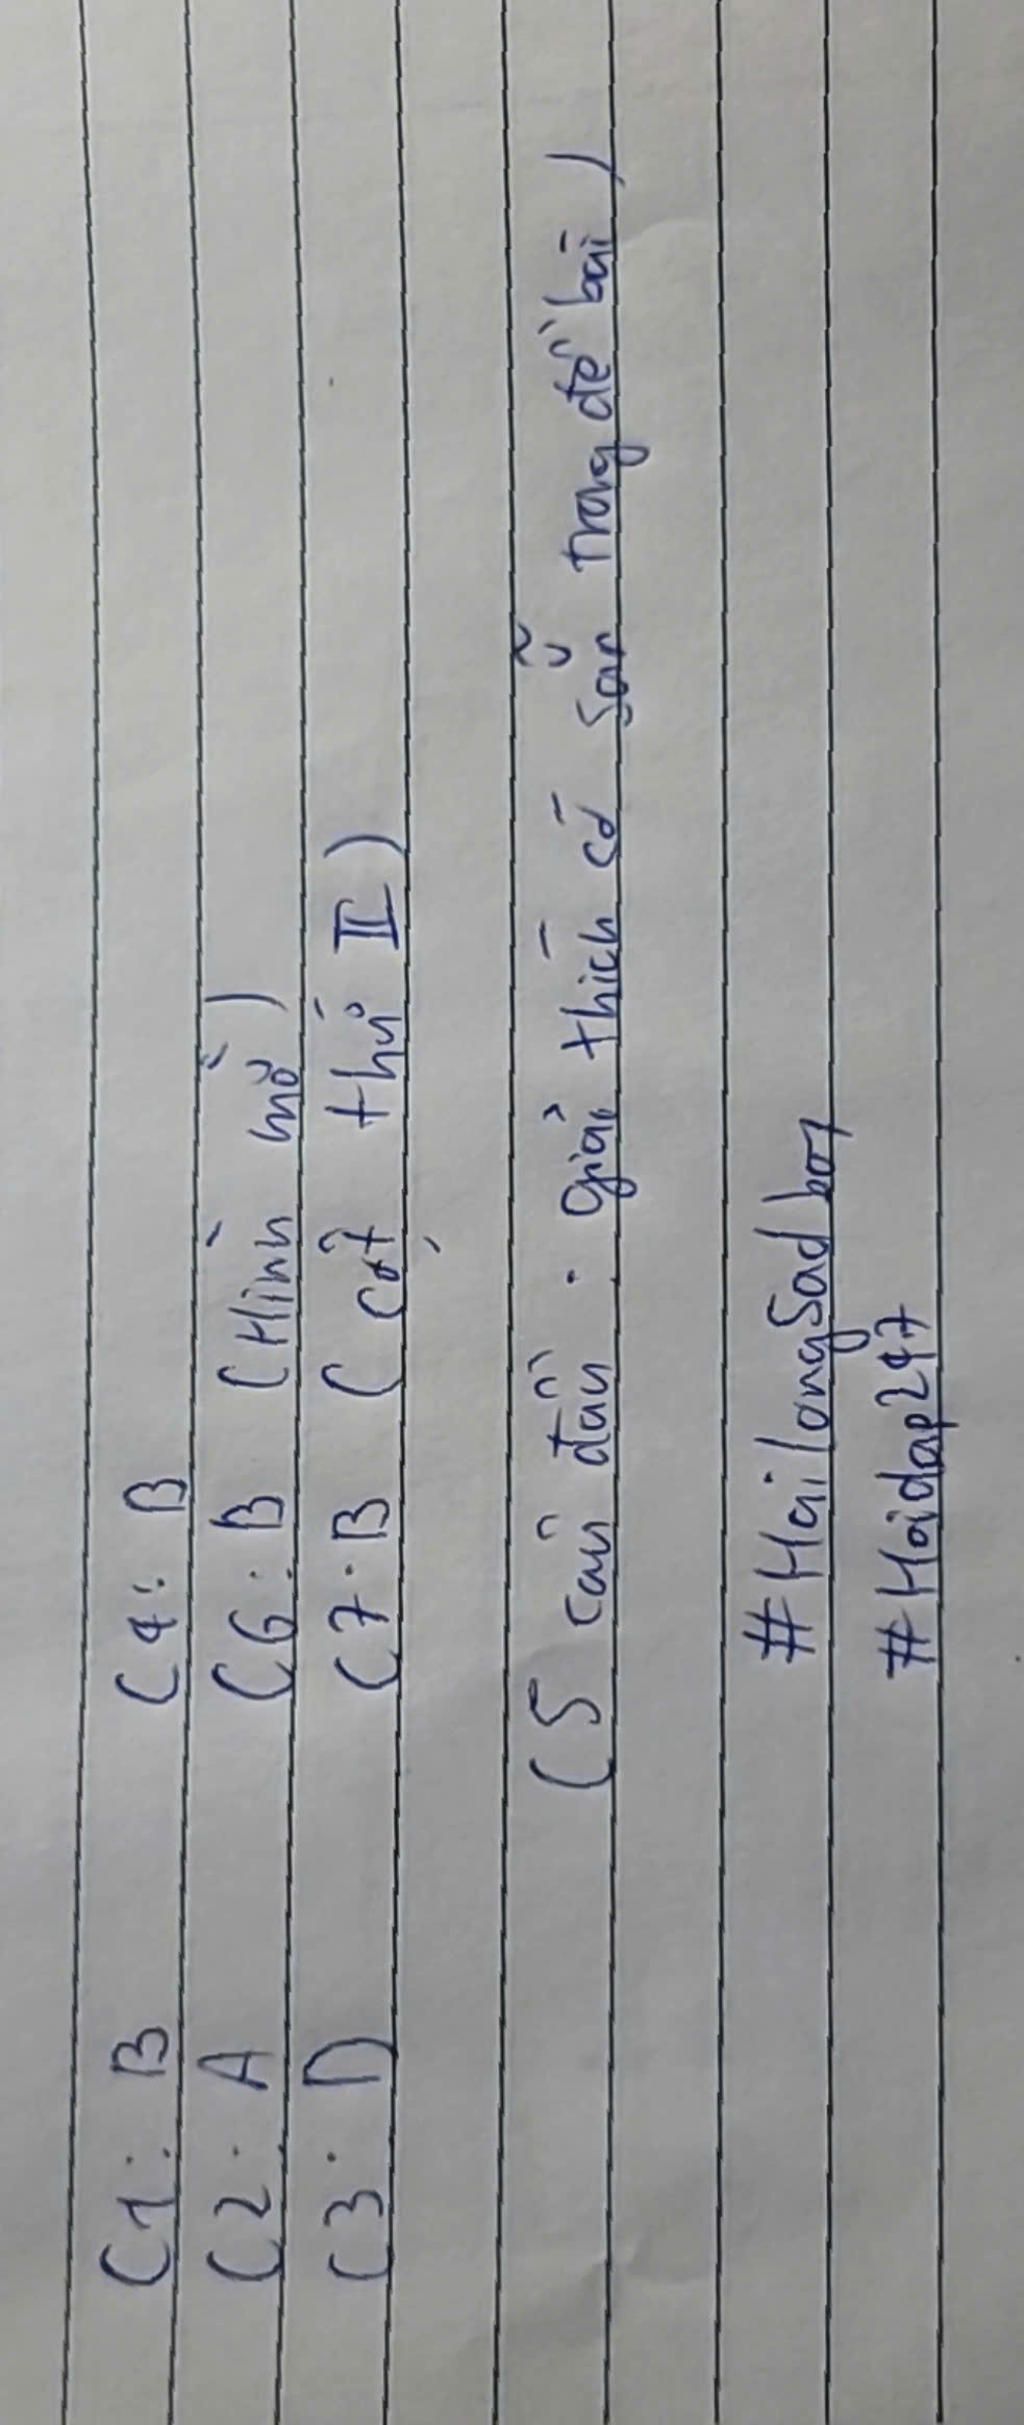 C1: B C4: B
C2: A C6: B (Hình mờ)
C3: D C7: B (cột thứ II)
(5 câu đầu: giải thích có sẵn trong đề bài)
#HailongSadboy
#Hoidap247